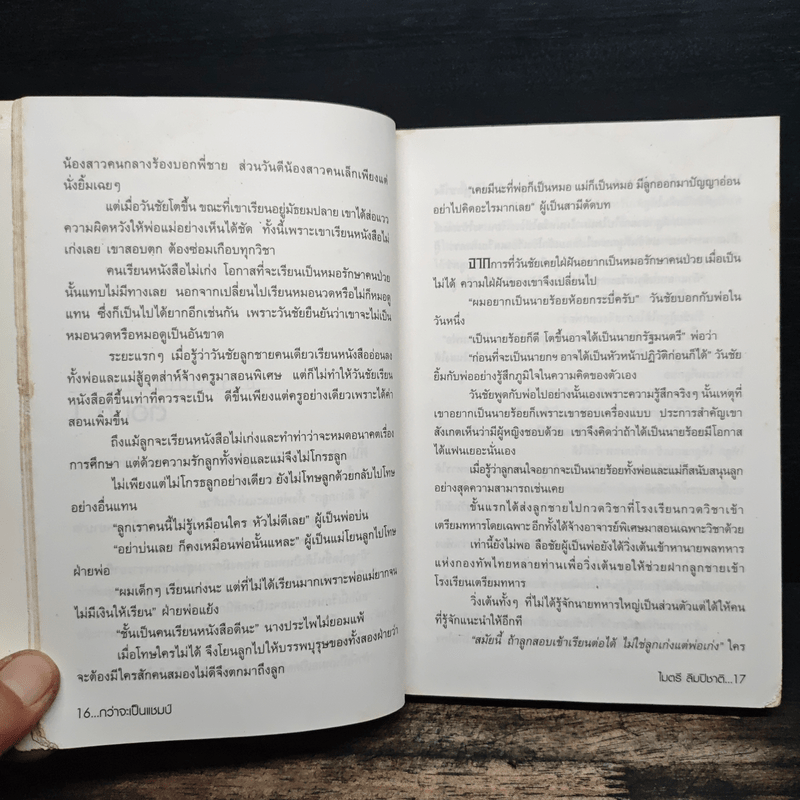 น้องสาวคนกลางร้องบอกพี่ชาย ส่วนวันดีน้องสาวคนเล็กเพียงแต่
นั่งยิ้มเฉยๆ
แต่เมื่อวันชัยโตขึ้น ขณะที่เขาเรียนอยู่มัธยมปลาย เขาได้ส่อแวว
ความผิดหวังให้พ่อแม่อย่างเห็นได้ชัด ทั้งนี้เพราะเขาเรียนหนังสือไม่
เก่งเลย เขาสอบตก ต้องซ่อมเกือบทุกวิชา
คนเรียนหนังสือไม่เก่ง โอกาสที่จะเรียนเป็นหมอรักษาคนป่วย
นั้นแทบไม่มีทางเลย นอกจากเปลี่ยนไปเรียนหมอนวดหรือไม่ก็หมอดู
แทน ซึ่งก็เป็นไปได้ยากอีกเช่นกัน เพราะวันชัยยืนยันว่าเขาจะไม่เป็น
หมอนวดหรือหมอดูเป็นอันขาด
ระยะแรกๆ เมื่อรู้ว่าวันชัยลูกชายคนเดียวเรียนหนังสืออ่อนลง
ทั้งพ่อและแม่สู้อุตส่าห์จ้างครูมาสอนพิเศษ แต่ก็ไม่ทำให้วันชัยเรียน
หนังสือดีขึ้นเท่าที่ควรจะเป็น ดีขึ้นเพียงแต่ครูอย่างเดียวเพราะได้ค่า
สอนเพิ่มขึ้น
ถึงแม้ลูกจะเรียนหนังสือไม่เก่งและทำท่าว่าจะหมดอนาคตเรื่อง
การศึกษา แต่ด้วยความรักลูกทั้งพ่อและแม่จึงไม่โกรธลูก
ไม่เพียงแต่ไม่โกรธลูกอย่างเดียว ยังไม่โทษลูกด้วยกลับไปโทษ
อย่างอื่นแทน
"ลูกเราคนนี้ไม่รู้เหมือนใคร หัวไม่ดีเลย" ผู้เป็นพ่อบ่น
"อย่าบ่นเลย ก็คงเหมือนพ่อนั้นแหละ" ผู้เป็นแม่โยนลูกไปโทษ
ฝ่ายพ่อ
"ผมเด็กๆ เรียนเก่งนะ แต่ที่ไม่ได้เรียนมากเพราะพ่อแม่ยากจน
ไม่มีเงินให้เรียน" ฝ่ายพ่อแย้ง
"ชั้นเป็นคนเรียนหนังสือดีนะ" นางประไพไม่ยอมแพ้
เมื่อโทษใครไม่ได้ จึงโยนลูกไปให้บรรพบุรุษของทั้งสองฝ่ายว่า
จะต้องมีใครสักคนสมองไม่ดีจึงตกมาถึงลูก
16...กว่าจะเป็นแชมป์
"เคยมีนะที่พ่อก็เป็นหมอ แม่ก็เป็นหมอ มีลูกออกมาปัญญาอ่อน
อย่าไปคิดอะไรมากเลย" ผู้เป็นสามีตัดบท
จากการที่วันชัยเคยใฝ่ฝันอยากเป็นหมอรักษาคนป่วย เมื่อเป็น
ไม่ได้ ความใฝ่ฝันของเขาจึงเปลี่ยนไป
"ผมอยากเป็นนายร้อยห้อยกระบี่ครับ" วันชัยบอกกับพ่อใน
วันหนึ่ง
"เป็นนายร้อยก็ดี โตขึ้นอาจได้เป็นนายกรัฐมนตรี" พ่อว่า
"ก่อนที่จะเป็นนายกฯ อาจได้เป็นหัวหน้าปฏิวัติก่อนก็ได้" วันชัย
ยิ้มกับพ่ออย่างรู้สึกภูมิใจในความคิดของตัวเอง
วันชัยพูดกับพ่อไปอย่างนั้นเองเพราะความรู้สึกจริงๆ นั้นเหตุที่
เขาอยากเป็นนายร้อยก็เพราะเขาชอบเครื่องแบบ ประการสำคัญเขา
สังเกตเห็นว่ามีผู้หญิงชอบด้วย เขาจึงคิดว่าถ้าได้เป็นนายร้อยมีโอกาส
ได้แฟนเยอะนั่นเอง
เมื่อรู้ว่าลูกสนใจอยากจะเป็นนายร้อยทั้งพ่อและแม่ก็สนับสนุนลูก
อย่างสุดความสามารถเช่นเคย
ขั้นแรกได้ส่งลูกชายไปกวดวิชาที่โรงเรียนกวดวิชาเข้า
เตรียมทหารโดยเฉพาะอีกทั้งได้จ้างอาจารย์พิเศษมาสอนเฉพาะวิชาด้วย
เท่านี้ยังไม่พอ ลือชัยผู้เป็นพ่อยังได้วิ่งเต้นเข้าหานายพลทหาร
แห่งกองทัพไทยหลายท่านเพื่อวิ่งเต้นขอให้ช่วยฝากลูกชายเข้า
โรงเรียนเตรียมทหาร
วิ่งเต้นทั้งๆ ที่ไม่ได้รู้จักนายทหารใหญ่เป็นส่วนตัวแต่ได้ให้คน
ที่รู้จักแนะนำให้อีกที
"สมัยนี้ ถ้าลูกสอบเข้าเรียนต่อได้ ไม่ใช่ลูกเก่งแต่พ่อเก่ง" ใคร
ไมตรี ลิมปิชาติ...17